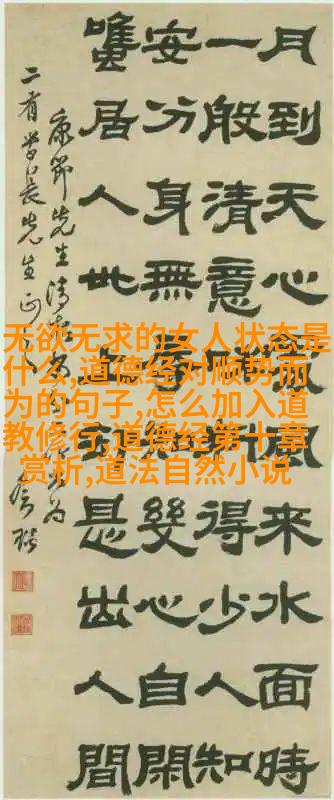 无欲无求的女人状态是
什么,道德经对顺势而
为的句子,怎么加入道
教修行,道德经第十章
赏析,道法自然小说
月到天心風來水面時
一般清意得少人知
安分身無幾心自閑
雖居人世上是出人間
康節先生清
學長先生正